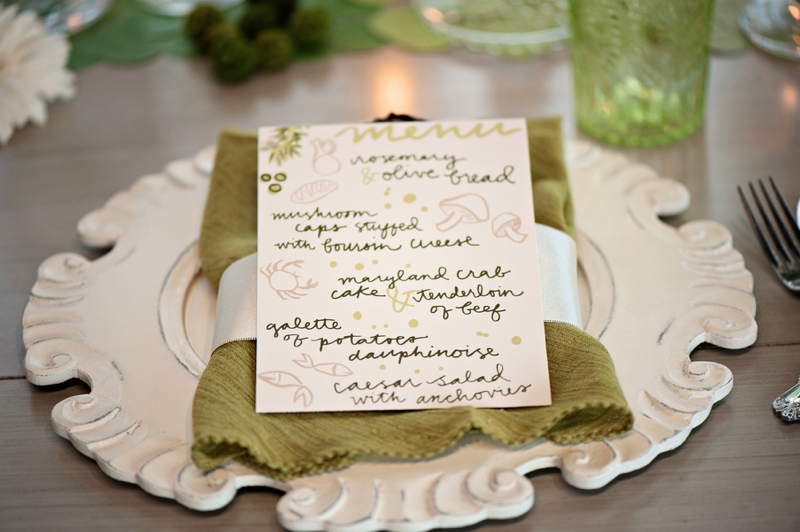 menu
rosemary
& olive bread
mushroom
caps stuffed
with boursin cheese
maryland crab
cake & tenderloin
of beef
galette
of potatoes
dauphinoise
caesar salad
with anchovies